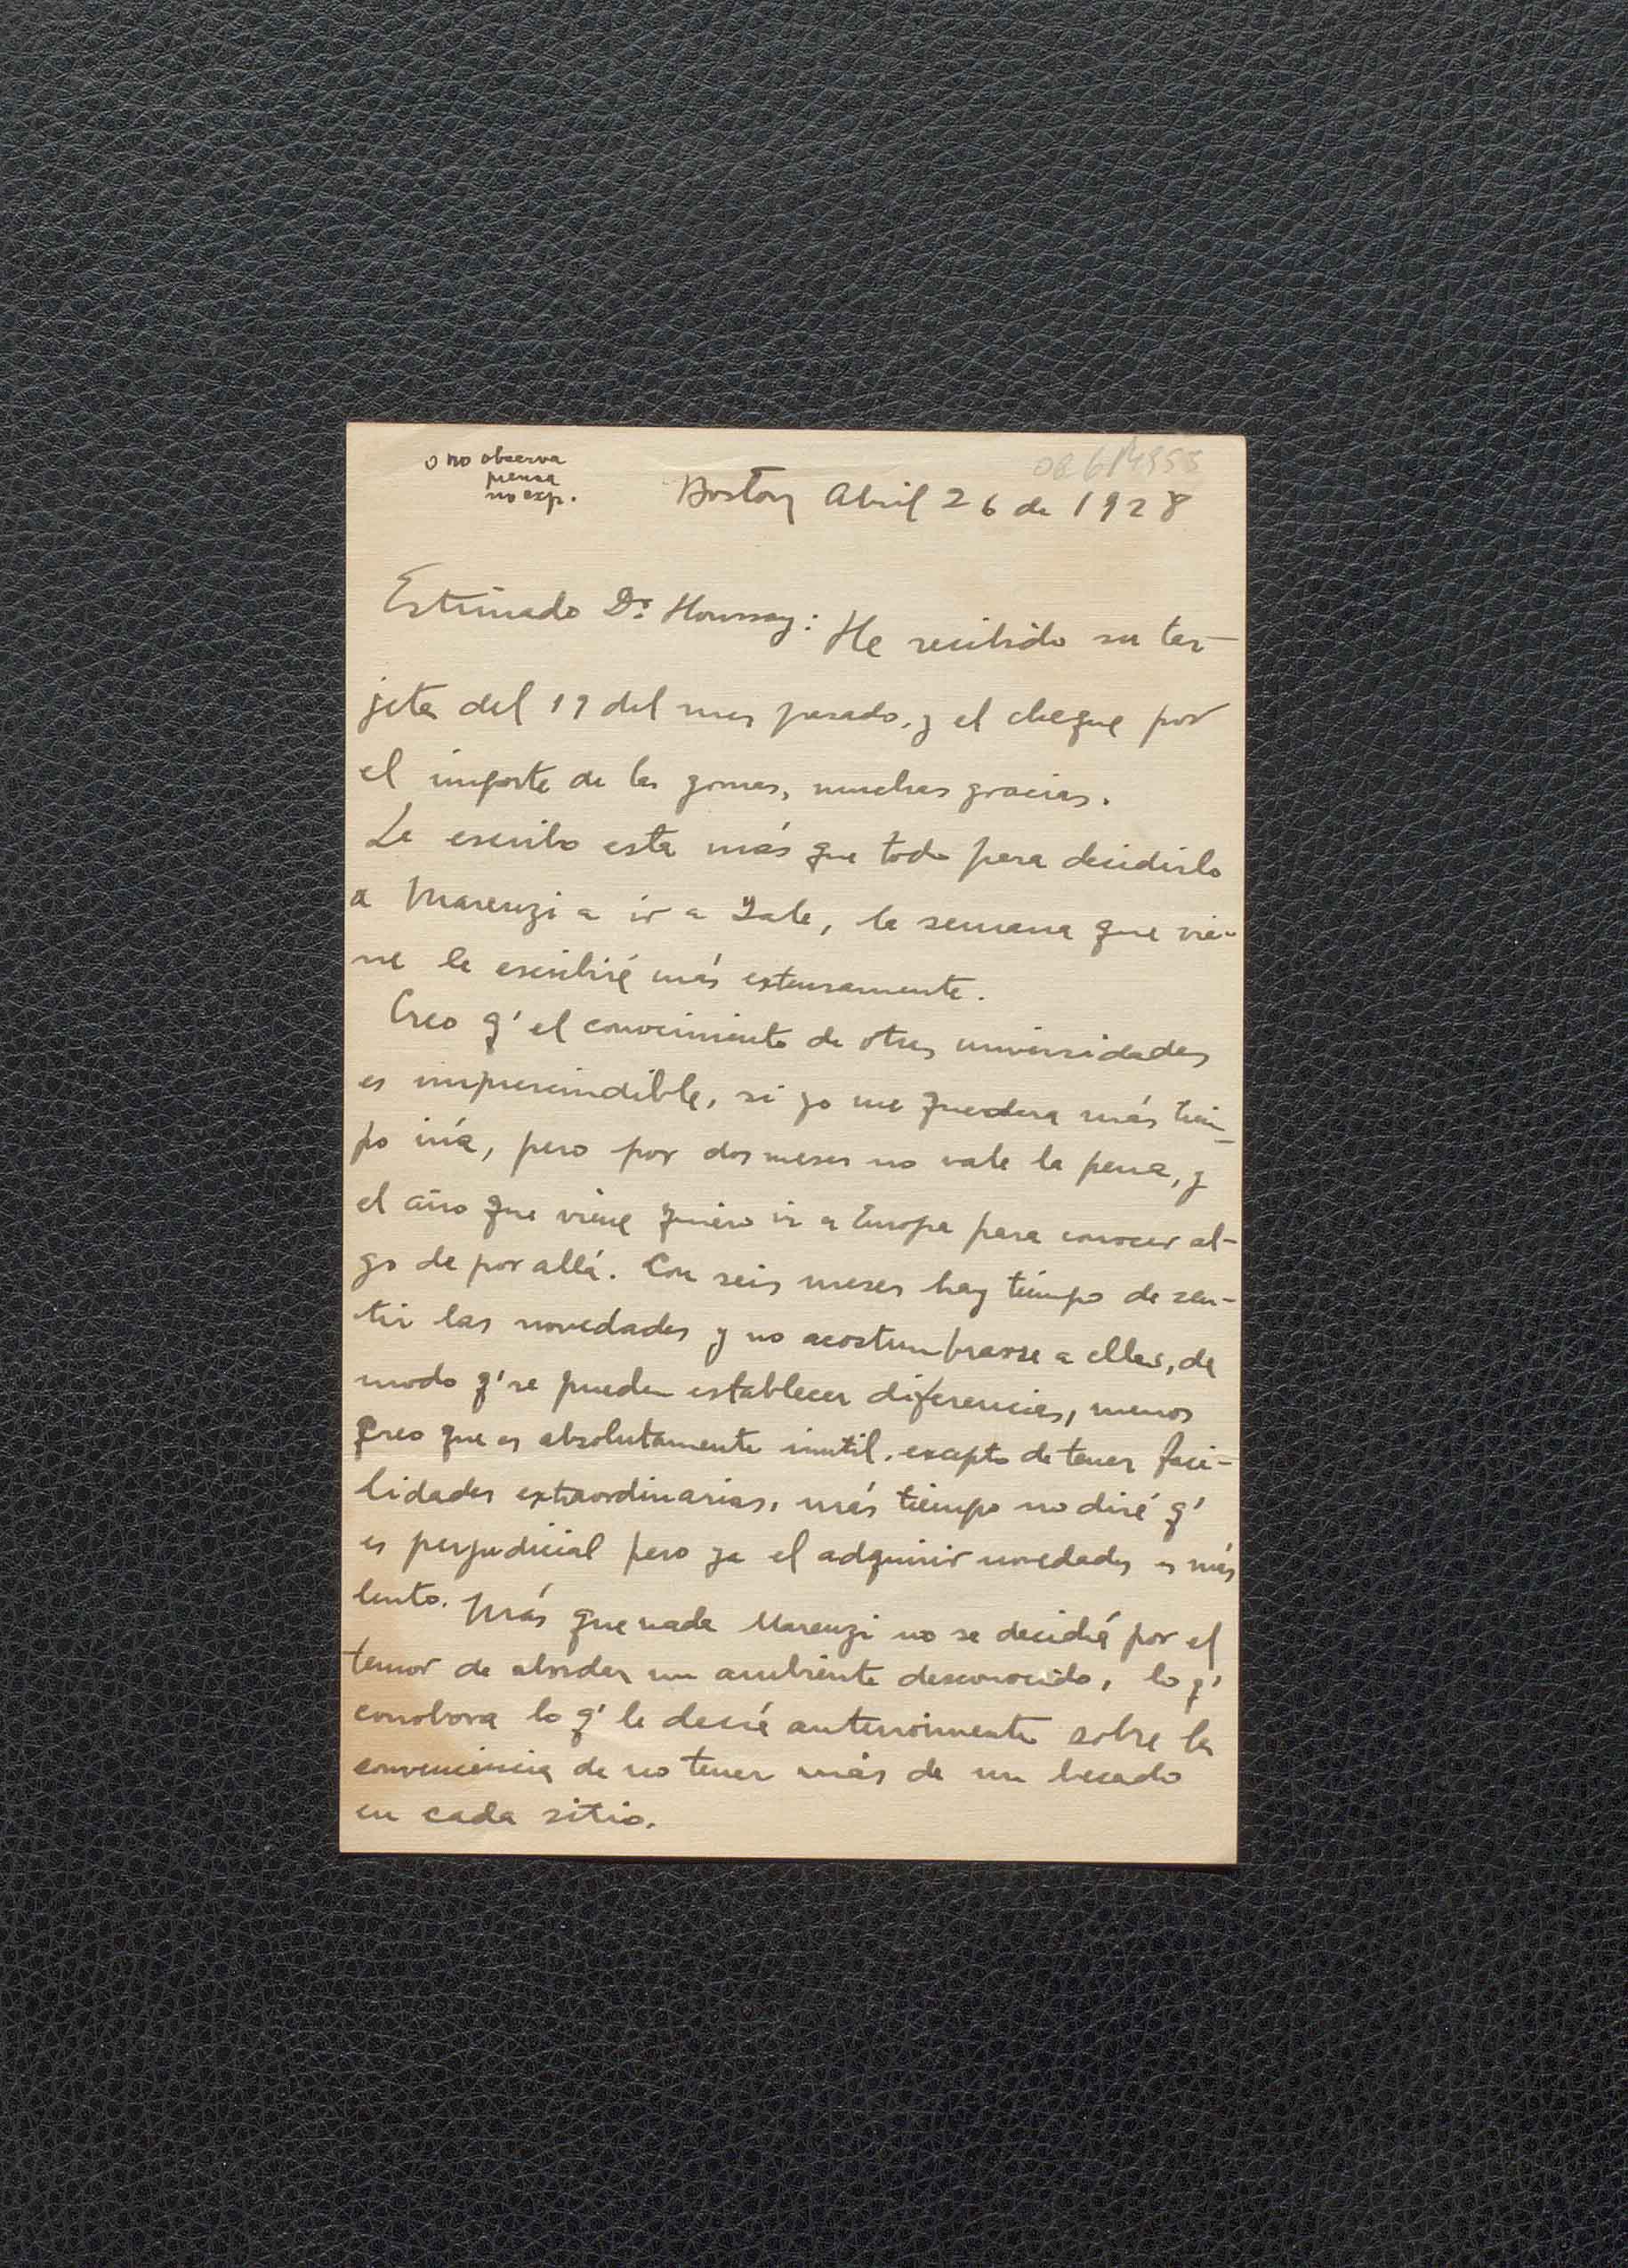 o no observa
piensa
no exp.
Boston Abril 26 de 1928
Estimado Dr. Houssay: He recibido su tar-
jeta del 19 del mes pasado, y el cheque por
el importe de las gomas, muchas gracias.
Le escribo esta más que todo para decidirlo
a Marenzi a ir a Yale, la semana que vie-
ne le escribiré más extensamente.
Creo q' el conocimiento de otras universidades
es imprescindible, si yo me quedara más tiem-
po iría, pero por dos meses no vale la pena, y
el año que viene quiero ir a Europa para conocer al-
go de por allá. Con seis meses hay tiempo de sen-
tir las novedades y no acostumbrarse a ellas, de
modo q' se pueden establecer diferencias, menos
creo que es absolutamente inutil, excepto de tener faci-
lidades extraordinarias, más tiempo no diré q'
es perjudicial pero ya el adquirir novedades es más
lento. Más que nada Marenzi no se decidía por el
temor de abordar un ambiente desconocido, lo q'
corrobora lo q' le decía anteriormente sobre la
conveniencia de no tener más de un becado
en cada sitio.